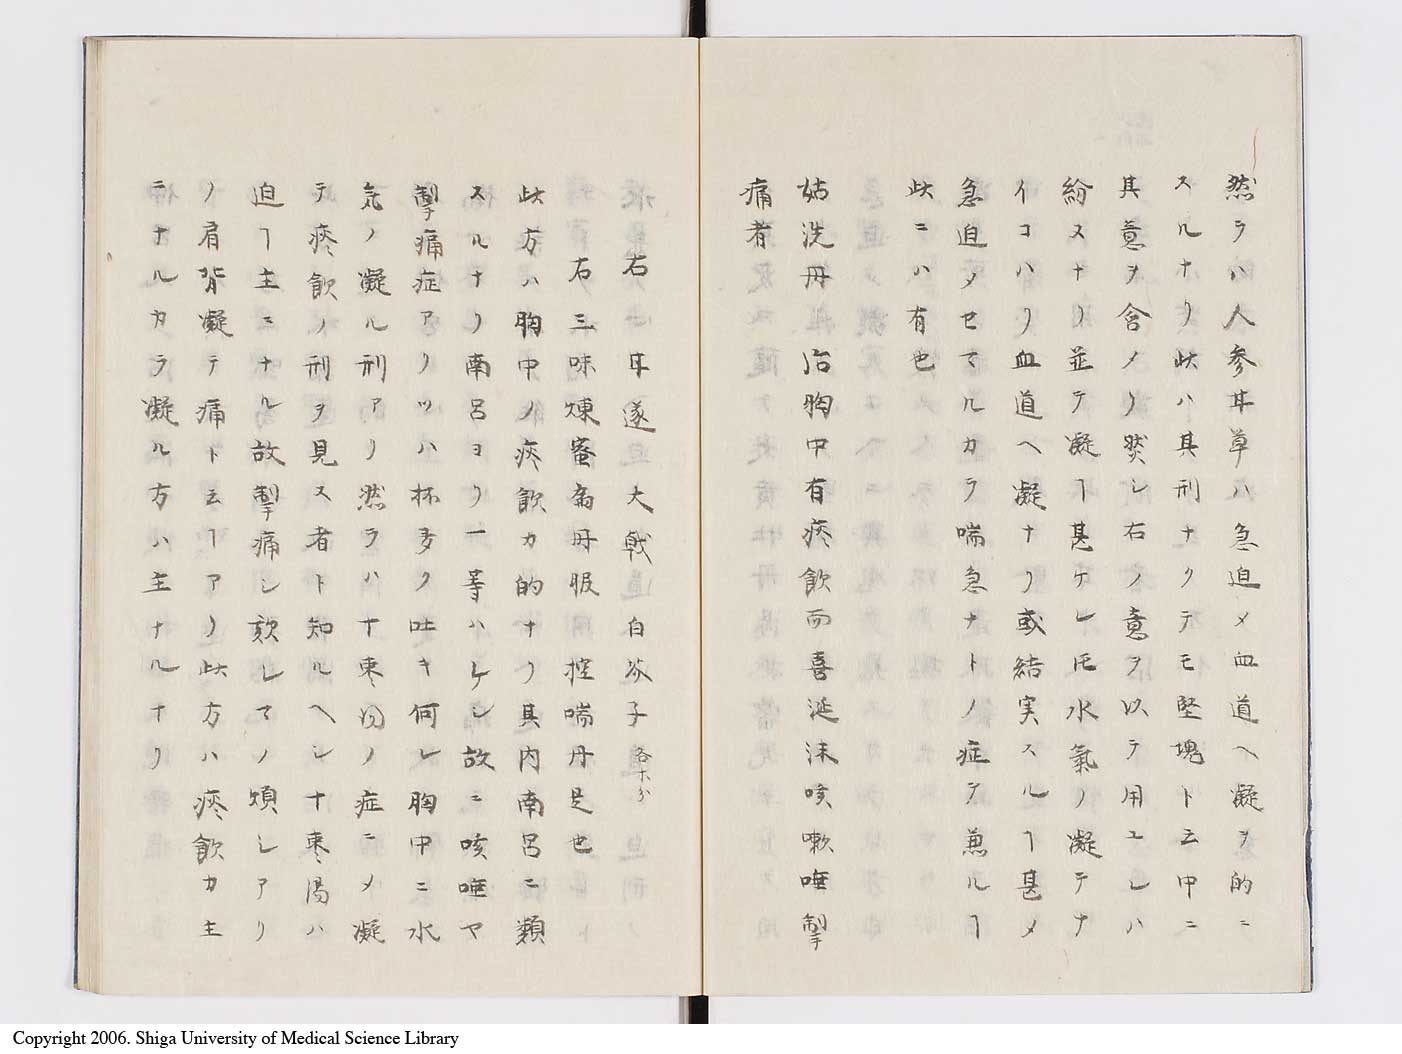 然ラハ人参耳草ハ急迫メ血道ヘ凝ヲ的ニ
スルナリ此ハ其刑ナクテモ堅塊ト云中ニ
其意ヲ含メリ癸シ右ノ意ヲ以テ用ユレハ
紛スナリ並テ凝ヿ甚ケレ𪜈水氣ノ凝テナ
イコハリ血道ヘ凝ナリ或結実スルヿ甚メ
急迫メセマルカラ喘急ナトノ症テ兼ルヿ
此ニハ有也
姑洗丹 治胸中有痰飲而喜涎沫咳嗽唾掣
痛者
右 甘遂 大戟 白芥子 各十分
右三味煉蜜為丹服 控喘丹是也
此方ハ胸中ノ痰飲カ的ナリ其内南呂ニ類
スルナリ南呂ヨリ一等ハレケシ故ニ咳唾ヤ
掣痛症アリノツハ杯多ク吐キ何レ胸中ニ水
気ノ凝ル刑アリ然ラハ十枣湯ノ症ニメ凝
テ痰飲ノ刑ヲ見ス者ト知ルヘシ十枣湯ハ
迫ヿ主ニナル故掣痛シ欬レマノ煩シアリ
ノ肩背凝テ痛ト云ヿアリ此方ハ痰飲カ主
ニナルカラ凝ル方ハ主ナルナリ
Copyright 2006. Shiga University of Medical Science Library